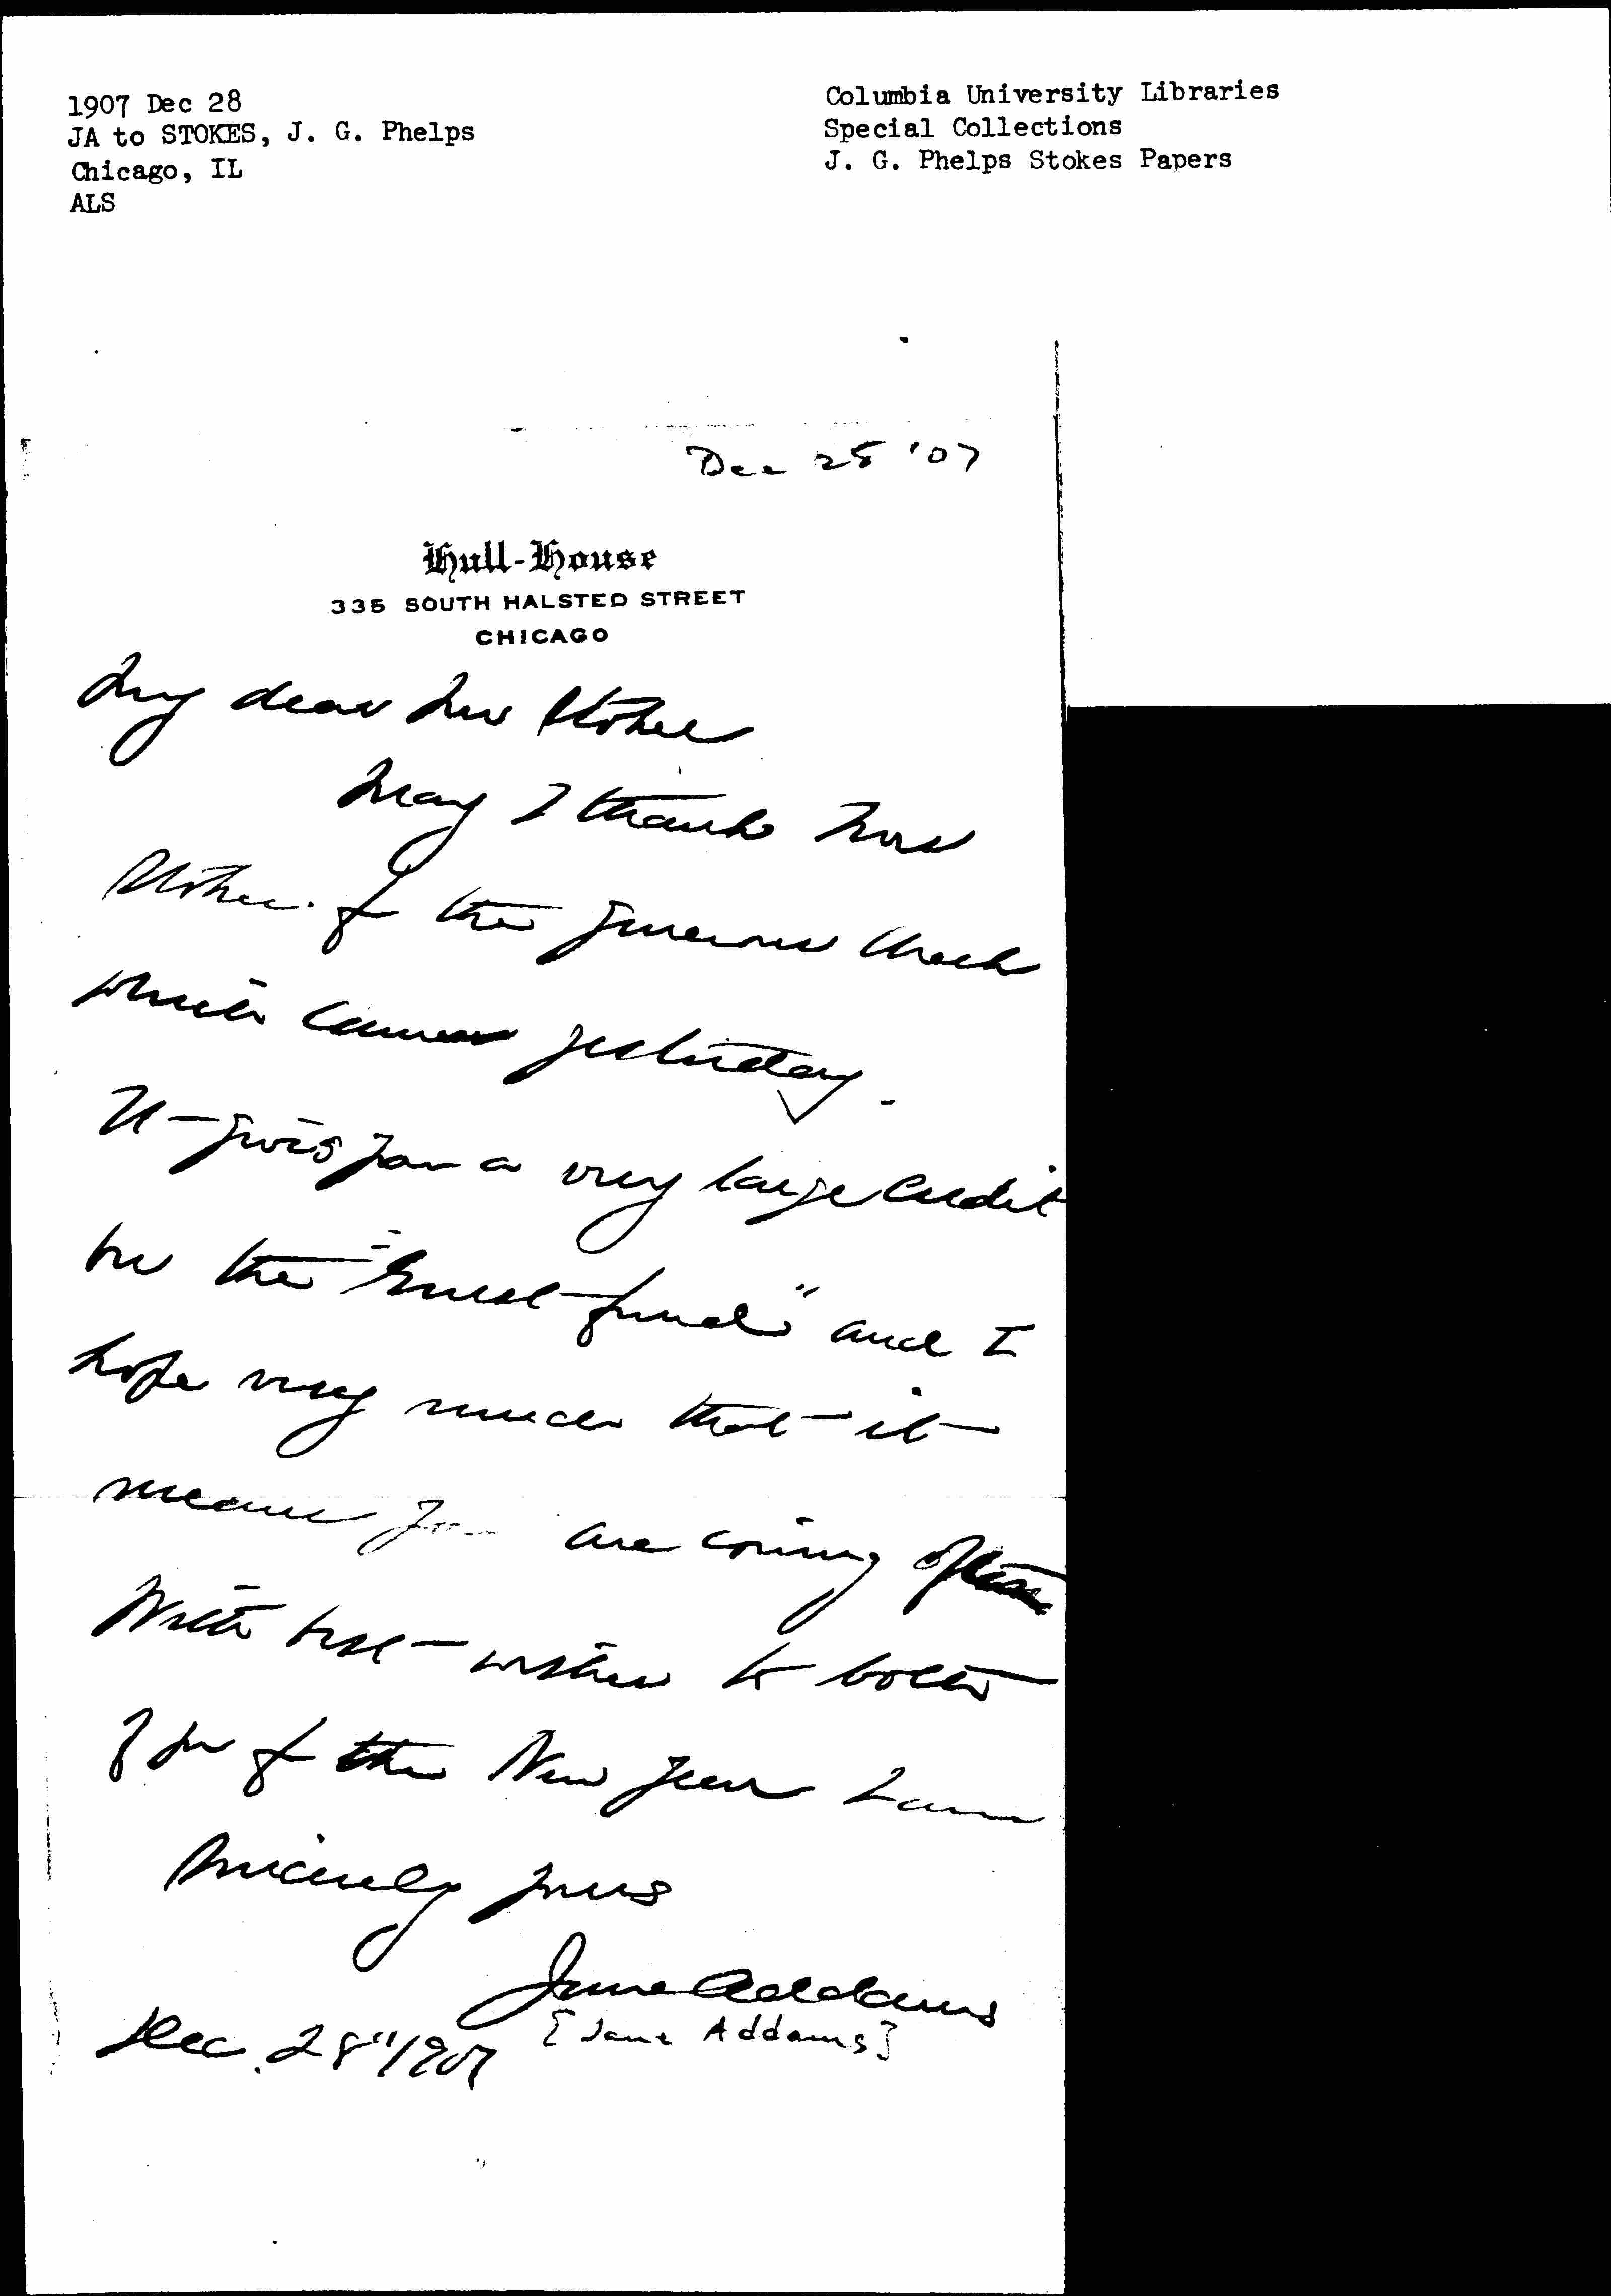 1907 Dec 28
JA to STOKES, J. G. Phelps
Chicago, IL
ALS
Columbia University Libraries
Special Collections
J. G. Phelps Stokes Papers
Dec 28 '07
Hull-House
335 SOUTH HALSTED STREET
CHICAGO
My dear Mr Stokes
May I thank Mrs
Stokes for the generous check
which came yesterday.
It gives you a very large credit
in the "Guest fund" and I
hope very much that it
means you are coming often
With best wishes to both
of you for the New Year I am
Sincerely yours
Jane Addams
[Jane Addams]
Dec. 28" 1907